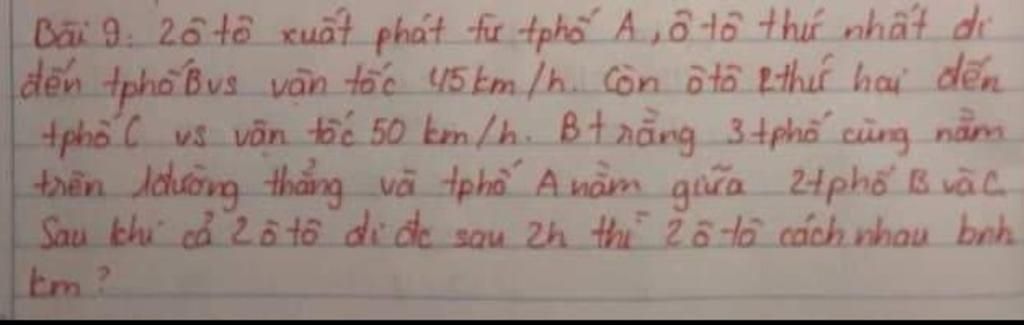 Bài 9: 2 ô tô xuất phát từ tphố A, ô tô thứ nhất đi
đến tphố B vs vận tốc 45 km/h. Còn ô tô thứ hai đến
tphố C vs vận tốc 50 km/h. Bt rằng 3 tphố cùng nằm
trên 1 đường thẳng và tphố A nằm giữa 2 tphố B và C
Sau khi cả 2 ô tô đi đc sau 2h thì 2 ô tô cách nhau bnh
km?